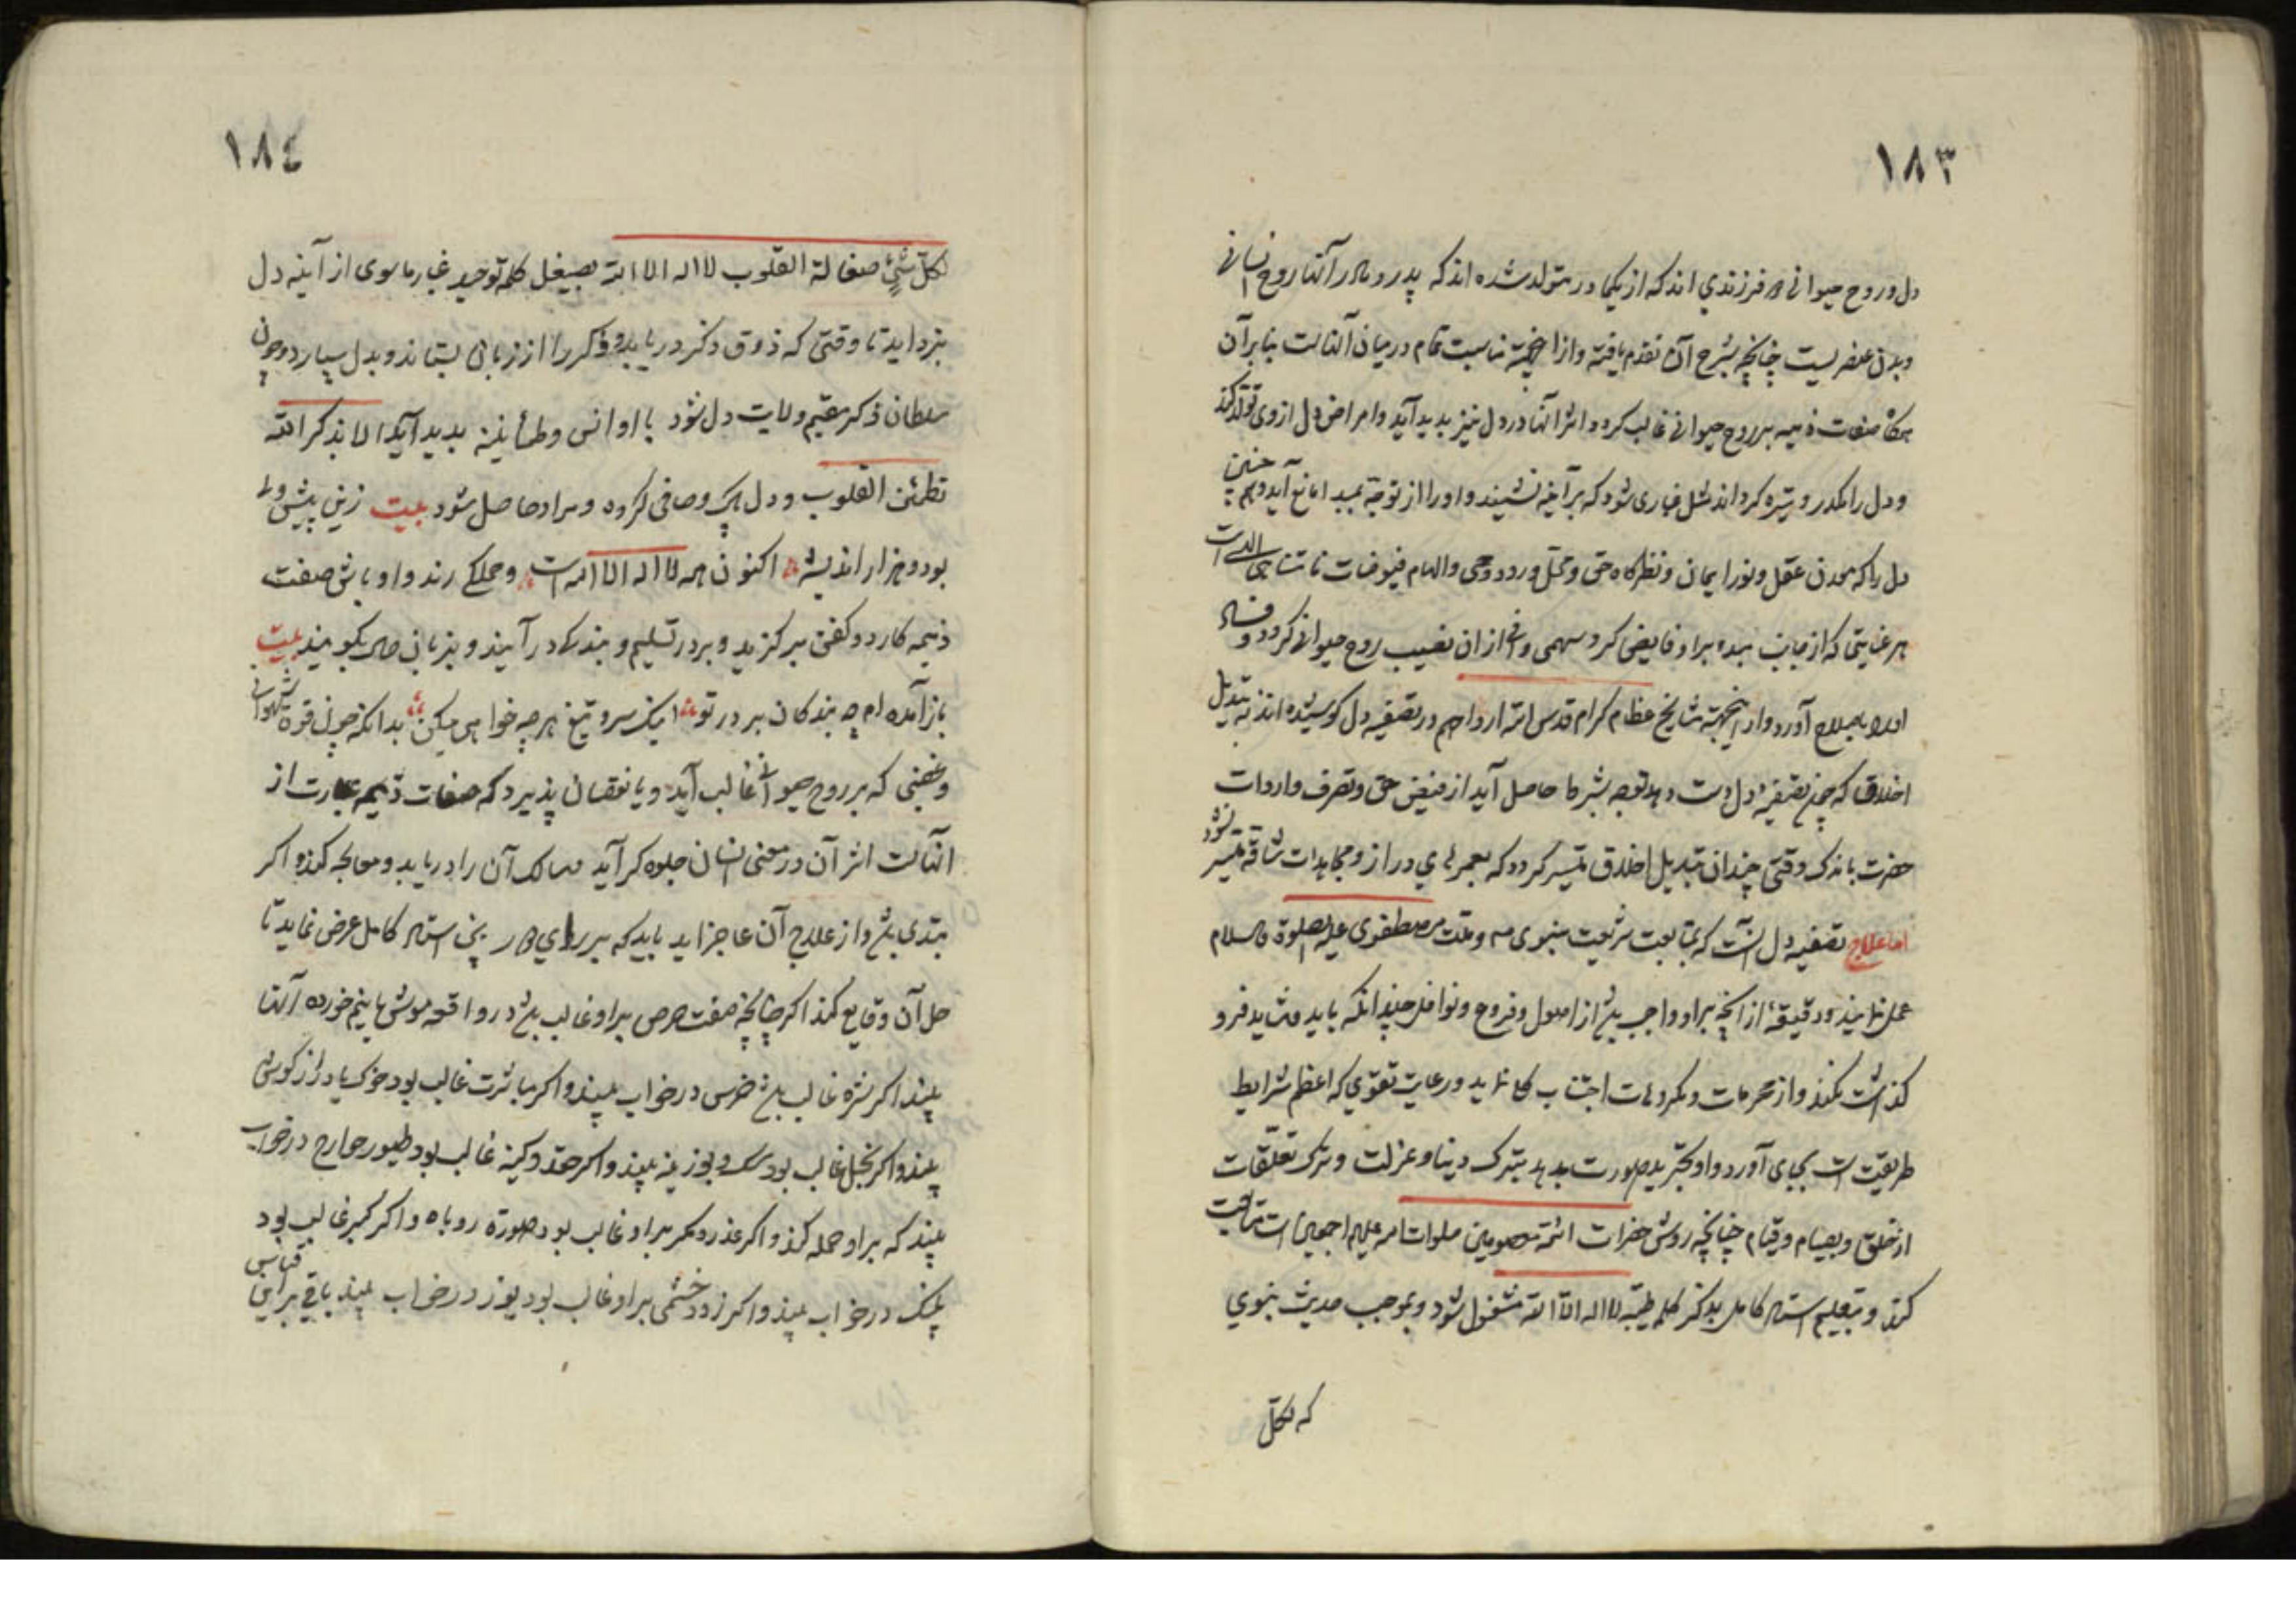 ١٨٣
دل و روح حیوانی دو فرزندی اند که از یکمادر متولد شده اند که پدر و مادر آنها روح انسانی
و بدن عنصریست چنانچه شرح آن تقدم یافته و ازینجهة مناسبت تمام در میان آنهاست بنابر آن
هرگاه صفات ذمیمه بر روح حیوانی غالب کردد اثر آنها در دل نیز پدید آید و امراض دل از وی تولد کند
و دل را مکدر و تیره کرداند مثل غباری شود که بر آینه نشیند و او را از توجه بمبدا مانع آید و هم چنین
دل را که معدن عقل و نور ایمان و نظرکاه حق و محل ورود وحی و الهام فیوضات نامتناهی الهیست
هر عنایتی که از جانب مبدء بر او فایض کردد سهمی وافی از ان نصیب روح حیوانی کردد و فساد
او را بصلاح آورد و از اینجهة مشایخ عظام کرام قدس الله ارواحهم در تصفیه دل کوشیده اند نه تبدیل
اخلاق که چون تصفیه دل دست دهد توجه بشرط حاصل آید از فیض حق و تصرف واردات
حضرت باندک وقتی چندان تبدیل اخلاق میسر کردد که بعمرهای دراز و مجاهدات شاقه میسر نشود
اما علاج تصفیه دل آنست که بمتابعت شریعت نبوی و ملت مصطفوی علیه الصلوة والسلام
عمل نمایند و دقیقهٔ از آنچه بر او واجب باشد از اصول و فروع و نوافل چندانکه باید و شاید فرو
کذاشت نکند و از محرمات و مکروهات اجتناب کلی نماید و رعایت تقوی که اعظم شرایط
طریقت است بجای آورد و او بتجرید صورت بدهد بترک دنیا و عزلت و ترک تعلقات
از خلق و بصیام و قیام چنانچه روش حضرات ائمه معصومین صلوات الله علیهم اجمعین است متابعت
کند و بتعلیم استاد کامل بذکر کلمه طیبه لا اله الا الله مشغول شود و بموجب حدیث نبوی
که لکل
١٨٤
لکل شیٍٔ صقالة القلوب لا اله الا الله بصیقل کلمه توحید غبار ماسوی از آینه دل
بزداید تا وقتی که ذوق ذکر دریابد و ذکر را از زبان بستاند و بدل سپارد و چون
سلطان ذکر مقیم ولایت دل شود با او انس و طمأنینه پدید آید الا بذکر الله
تطمئن القلوب و دل پاک و صافی کردد و مراد حاصل شود بیت زین پیش دلی
بود و هزار اندیشه اکنون همه لا اله الا الله است و جملکی رند و اوباش صفت
ذمیمه کارد و کفن برکیرند و بر در تسلیم و بندکی درآیند و بزبان حال بکویند بیت
بازآمده ام چو بندکان بر در تو اینک سر و تیغ هر چه خواهی میکن بدانکه چون قوة شهوانی
و غضبی که بر روح حیوانی غالب آید و یا نقصان پذیرد که صفات ذمیمه عبارت از
آنهاست اثر آن در معنی انسان جلوه کر آید سالک آن را دریابد و معالجه کند و اکر
مبتدی باشد و از علاج آن عاجز آید باید که بر رای استاد کامل عرض نماید تا
حل آن وقایع کند اکر چنانچه صفت حرص بر او غالب باشد در واقعه موش یا نیم خورده آنها
بیند اکر شره غالب باشد خرس در خواب بیند و اکر مباشرت غالب بود خوک یا درازکوشی
بیند و اکر بخل غالب بود سک و بوزینه بیند و اکر حقد و کینه غالب بود طیور جوارح در خواب
بیند که بر او حمله کند و اکر غدر و مکر بر او غالب بود صورة روباه و اکر کبر غالب بود
پلنک در خواب بیند و اکر زود خشمی بر او غالب بود یوز در خواب بیند باقی براین قیاس